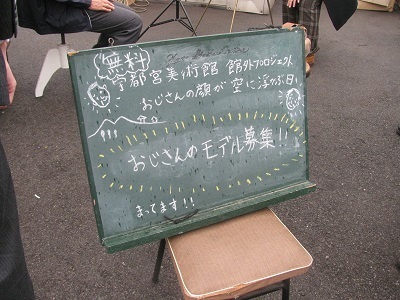 無料
宇都宮美術館 館外プロジェクト
おじさんの顔が空に浮かぶ日
おじさんのモデル募集!!
まってます!!